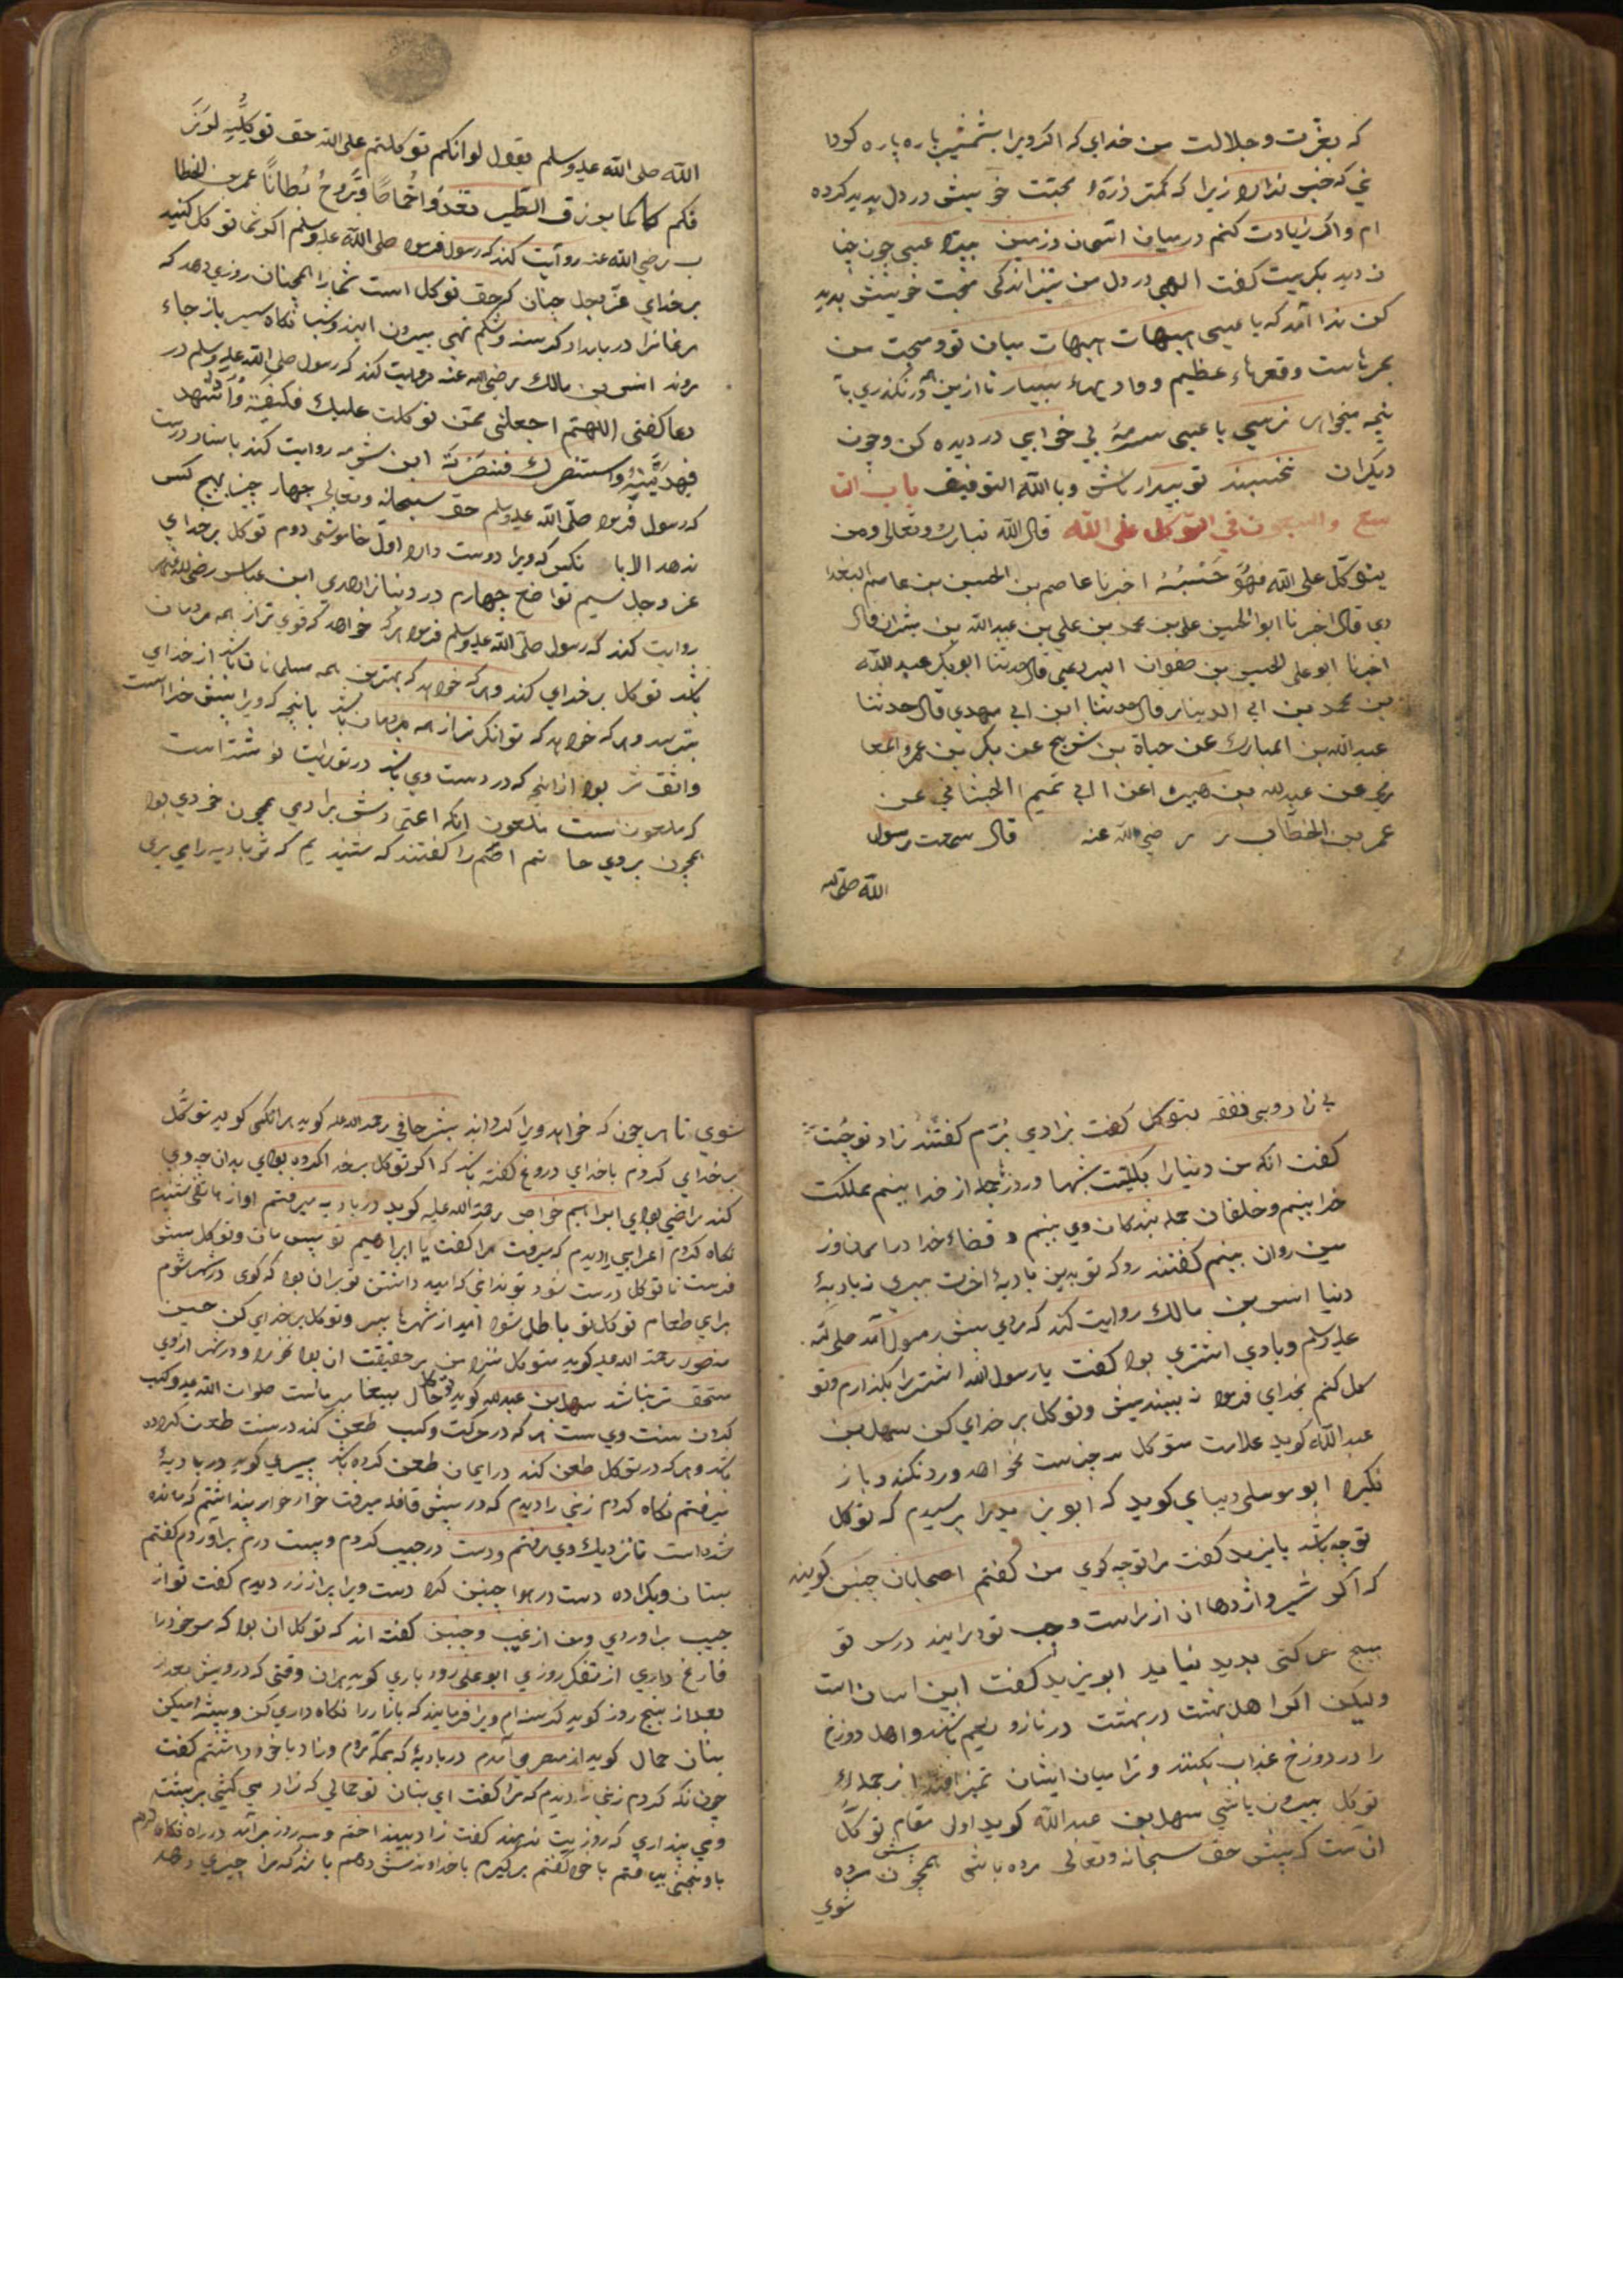 که بعزت و جلالت من خدای که اگر ویرا بشمشیر پاره پاره کودا
نی که خبر ندارد زیرا که کمتر ذرّهٔ محبّت خویش در دل پدید کرده
ام و اگر زیادت کنم در میان آسمان و زمین عیسی چون چنا
ن دید بگریست گفت الهی در دل من نیز اندکی محبت خویش پدید
کن ندا آمد که یا عیسی هیهات هیهات میان تو و محبت من
بحرهاست و قعرهاء عظیم و وادیهاء بسیار تا ازین همه در نگذری بآ
نچه میخواهی نرسی یا عیسی سرمهٔ بی خوابی در دیده کن و چون
دیگران بخسبند تو بیدار باش و بالله التوفیق باب التا
سع والتسعون فی التوکل علی الله قال الله تبارک وتعالی ومن
یتوکل علی الله فهو حَسْبُهُ اخبرنا عاصم بن الحسین بن عاصم البغدا
دی قال اخبرنا ابو الحسین علی بن محمد بن علی بن عبدالله بن بشران قال
اخبرنا ابو علی الحسین بن صفوان البردعی قال حدثنا ابوبکر عبدالله
بن محمد بن ابی الدینا قال حدثنا ابن ابی مهدی قال حدثنا
عبدالله بن المبارک عن حیاة بن شریح عن بکر بن عمرو المعا
فری عن عبدالله بن هبیره عن ابی تمیم الجیشانی عن
عمر بن الخطّاب ر رضی الله عنه قال سمعت رسول
الله صلی الله
الله صلی الله علیه وسلم یقول لو انکم توکلتم علی الله حق توکّلِهِ لرَزَ
قکم کما یرزق الطیر تغدُوا خُماصًا وتَروحُ بُطانًا عمر بن الخطا
ب رضی الله عنه روایت کند که رسول فرمود صلی الله علیه وسلم اگر شما توکل کنید
بر خدای عزّ وجل چنان که حق توکل است شما را همچنان روزی دهد که
مرغانرا در بامداد گرسنه و شکم تهی بیرون آیند و شبانگاه سیر باز جاء
روند انس بن مالک رضی الله عنه روایت کند که رسول صلی الله علیه وسلم در
دعا گفتی اللهمّ اجعلنی ممّن توکلت علیک فکفیته واستهد
فهدیته واستنصرک فنصرته ابن روایت کند باسناد درست
که رسول فرمود صلّی الله علیه وسلم حق سبحانه وتعالی چهار چیز بهیچ کس
ندهد الا با نکس که ویرا دوست دارد اوّل خاموشی دوم توکل بر خدای
عز وجل سیم تواضع چهارم در دنیا زاهدی ابن عباس رضی الله عنه
روایت کند که رسول صلّی الله علیه وسلم فرمود هر که خواهد که قوی تر از همه مردمان
باشد توکل بر خدای کند و هر که خواهد که بهترین همه مسلمانان باشد از خدای
بترسد و هر که خواهد که توانگرتر از همه مردمان باشد بانچه که ویرا پیش خدا است
واثق تر بود از آنچه که در دست وی باشد در توریت نوشته است
که ملعون است ملعون انکه اعتماد برآدمی همچون خودی بود
همچون بروی حاتم اصّم را گفتند که شنیدیم که تو ببادیه رایی بری
بی زاد و بی نفقه بتوکل گفت بزادی بُرّم گفتند زاد تو چیست
گفت آنکه من دنیا را بکلیت شبها و روز بجمله از خدا بینم مملکت
خدا بینم و خلقان جمله بندگان وی بینم و قضاء خدا در آسمان و ز
مین روان بینم گفتند رو که تو بدین بادیهٔ اخرت ببری نه بادیهٔ
دنیا انس بن مالک روایت کند که مردی پیش رسول آمد صلی الله
علیه وسلم و با وی اشتری بود گفت یا رسول الله اشتر را بگذارم و تو
کل کنم بخدای فرمود نه ببندش و توکل بر خدای کن سهل بن
عبدالله گوید علامت متوکل سه چیزست نخواهد و رد نکند و باز
نگیرد ابو موسلی دیبای گوید که ابو یزید را پرسیدم که توکل
تو چه باشد بایزید گفت مرا تو چه گوی من گفتم اصحابان چنین گویند
که اگر شیر و اژدها از راست و چپ تو درایند در سر تو
هیچ حرکتی پدید نیاید ابو یزید گفت این اسان است
ولیکن اگر اهل بهشت در بهشت در ناز و نعیم باشند و اهل دوزخ
را در دوزخ عذاب بکنند و ترا میان ایشان تمیز افتد از جملهٔ
توکل بیرون باشی سهل بن عبدالله گوید اول مقام توکّل
آنست که پیش حق سبحانه وتعالی مرده باشی همچون مرده پیش
شوی
شوی تا هر چون که خواهد ویرا گرداند بشر حافی رحمة الله علیه گوید هر انکسی گوید توکّل
بر خدای کردم با خدای دروغ گفته باشد که اگر توکل بر خدا کرده بودی بدان چه وی
کند راضی بودی ابراهیم خواص رحمة الله علیه گوید در بادیه میرفتم اواز هاتفی شنیدم
نگاه کردم اعرابیی را دیدم که میرفت مرا گفت یا ابراهیم تو پیش مات و توکل پیش
فرست تا توکل درست شود تو ندانی که امید داشتن تو بران بود که گوی در شهر شوم
برای طعام توکل تو باطل شود امید از شهرها ببر و توکل بر خدای کن حسین
منصور رحمة الله علیه گوید متوکل بر حقیقت ان بود نخورد و در شهر ازوی
مستحق تر باشد سهل بن عبدالله گوید توکل حال پیغامبر ماست صلوات الله علیه و کسب
کردن سنت وی ست هر که در حرکت و کسب طعن کند در سنت طعن کرده
باشد و هر که در توکل طعن کند در ایمان طعن کرده باشد پیری گوید در بادیهٔ
میرفتم نگاه کردم زنی را دیدم که در پیش قافله میرفت خوار خوار پنداشتم که مانده
شده است تا نزدیک وی رفتم و دست در جیب کردم و بیست درم براوردم گفتم
بستان وی داده دست در هوا چنین کرد دست ویرا پر از زر دیدم گفت تو از
جیب براوردی ومن از غیب و چنین گفته اند که توکل ان بود که سر خود را
فارغ داری از تفکر روزی ابو علی رود باری گوید بران وقتی که درویش بعد از
بعد از پنج روز گوید گرسنه ام ویرا فرمایند که بازار را نگاه داری کن و پیشه میکن
بنان حمال گوید از مصر می آمدم در بادیهٔ که بمکه روم و زاد با خود داشتم گفت
چون نگه کردم زنی را دیدم که مرا گفت ای بنان تو حمالی که زاد می کشی بر پشت
ومی پنداری که روزیت ندهند گفت زاد بینداختم و سه روز برآمد در راه نگاه کردم
یافتم با خود گفتم برگیرم با خداوندش دهم باشد که مرا چیزی دهد